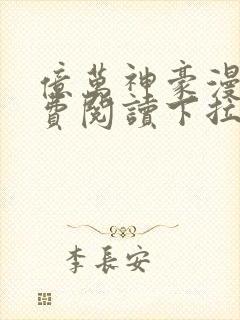 億萬神豪漫
費閱讀下拉
李長安